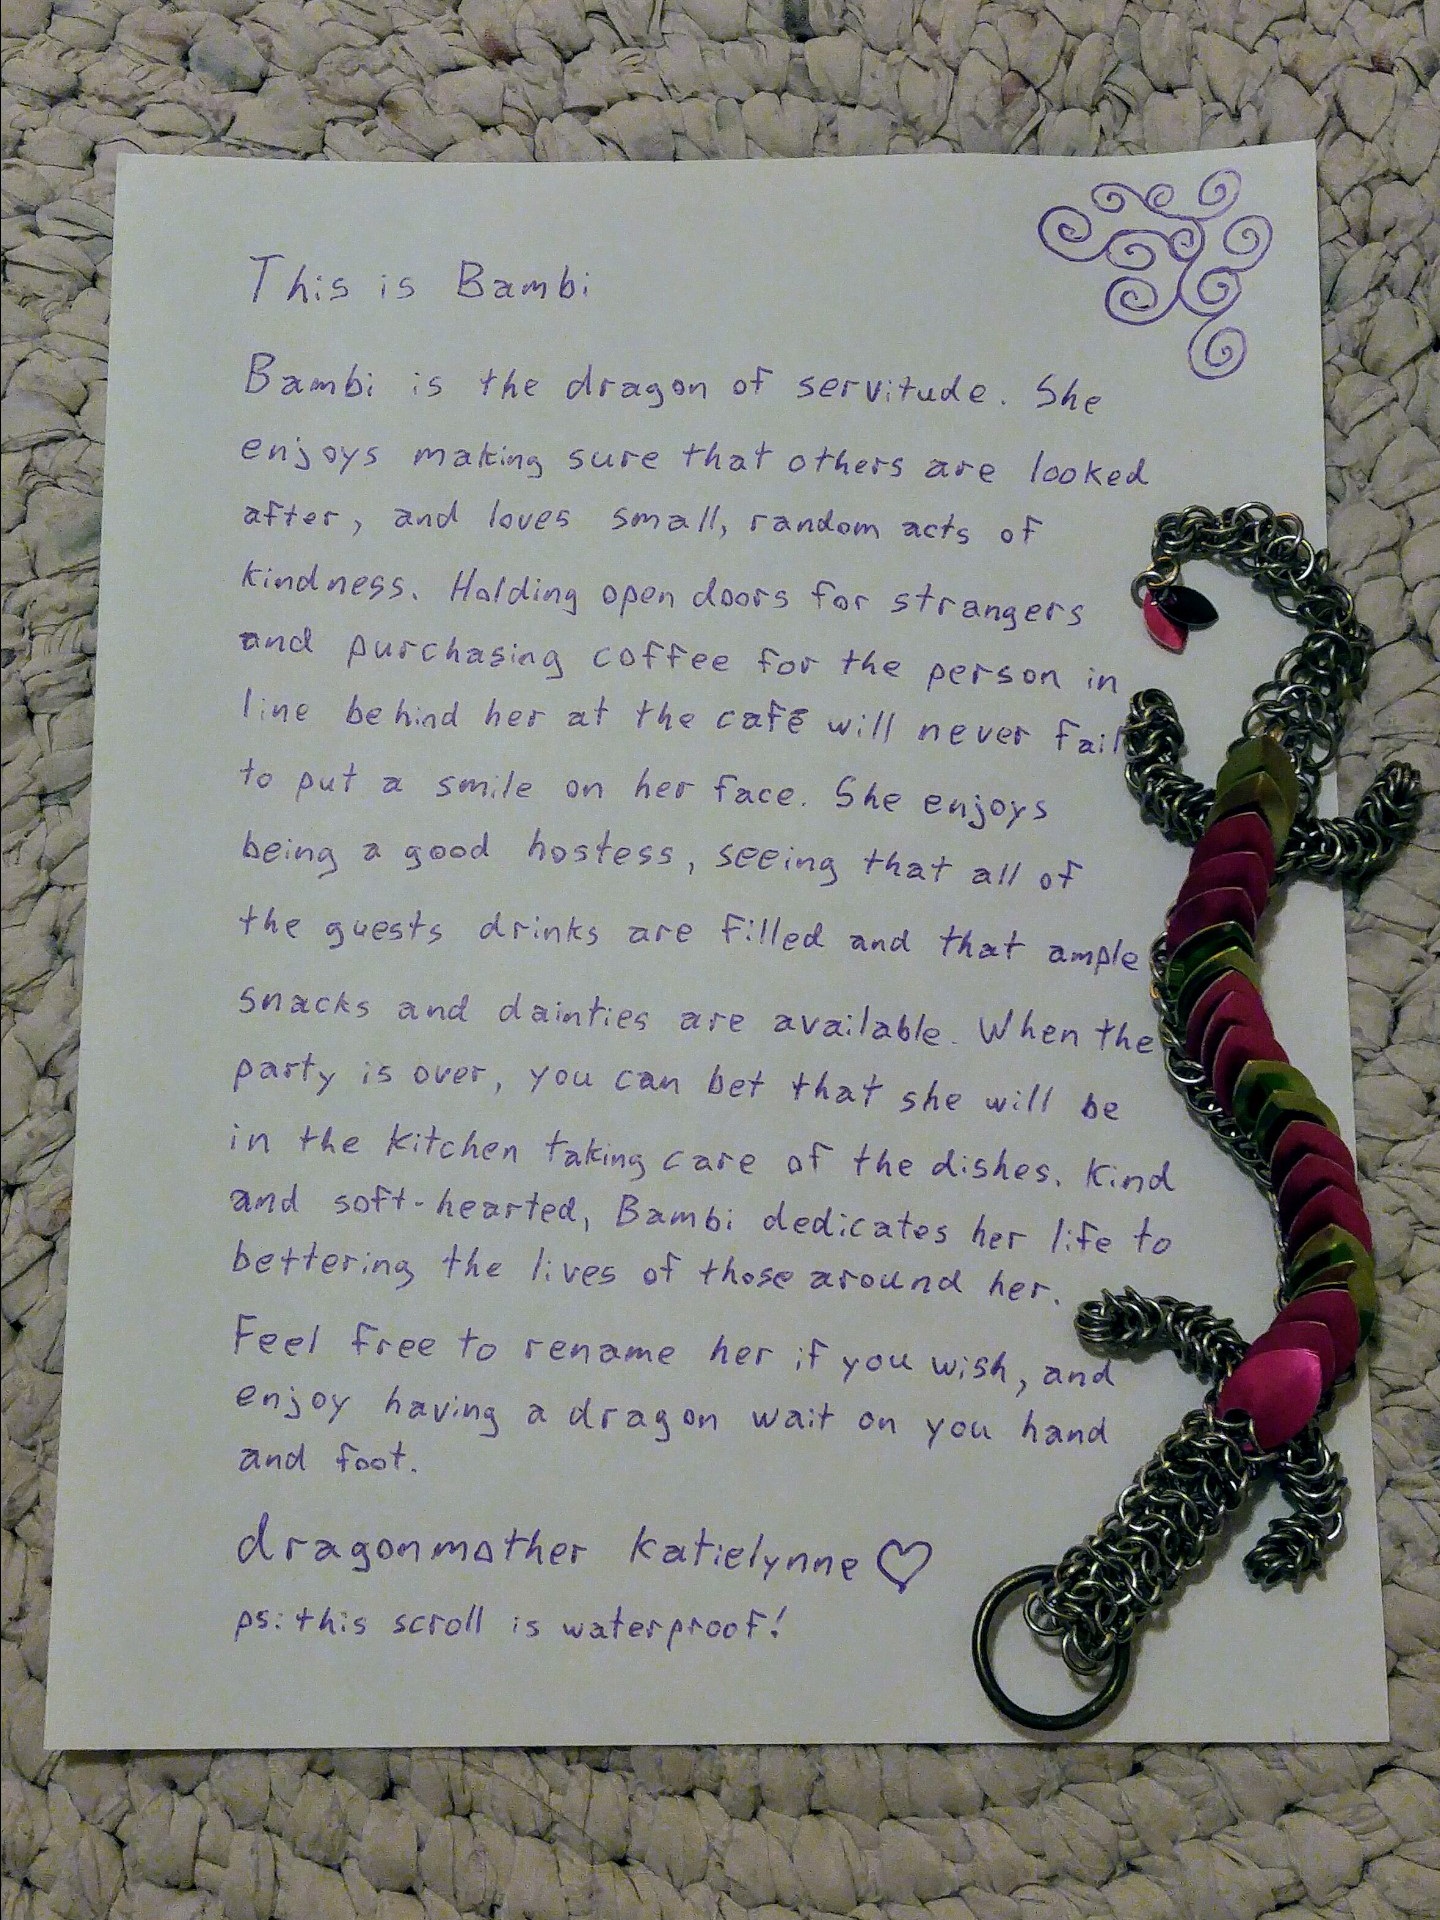 This is Bambi
Bambi is the dragon of servitude. She
enjoys making sure that others are looked
after, and loves small, random acts of
kindness. Holding open doors for strangers
and purchasing coffee for the person in
line behind her at the café will never fail
to put a smile on her face. She enjoys
being a good hostess, seeing that all of
the guests drinks are filled and that ample
snacks and dainties are available. When the
party is over, you can bet that she will be
in the kitchen taking care of the dishes. Kind
and soft-hearted, Bambi dedicates her life to
bettering the lives of those around her.
Feel free to rename her if you wish, and
enjoy having a dragon wait on you hand
and foot.
dragonmother Katielynne ♡
ps: this scroll is waterproof!